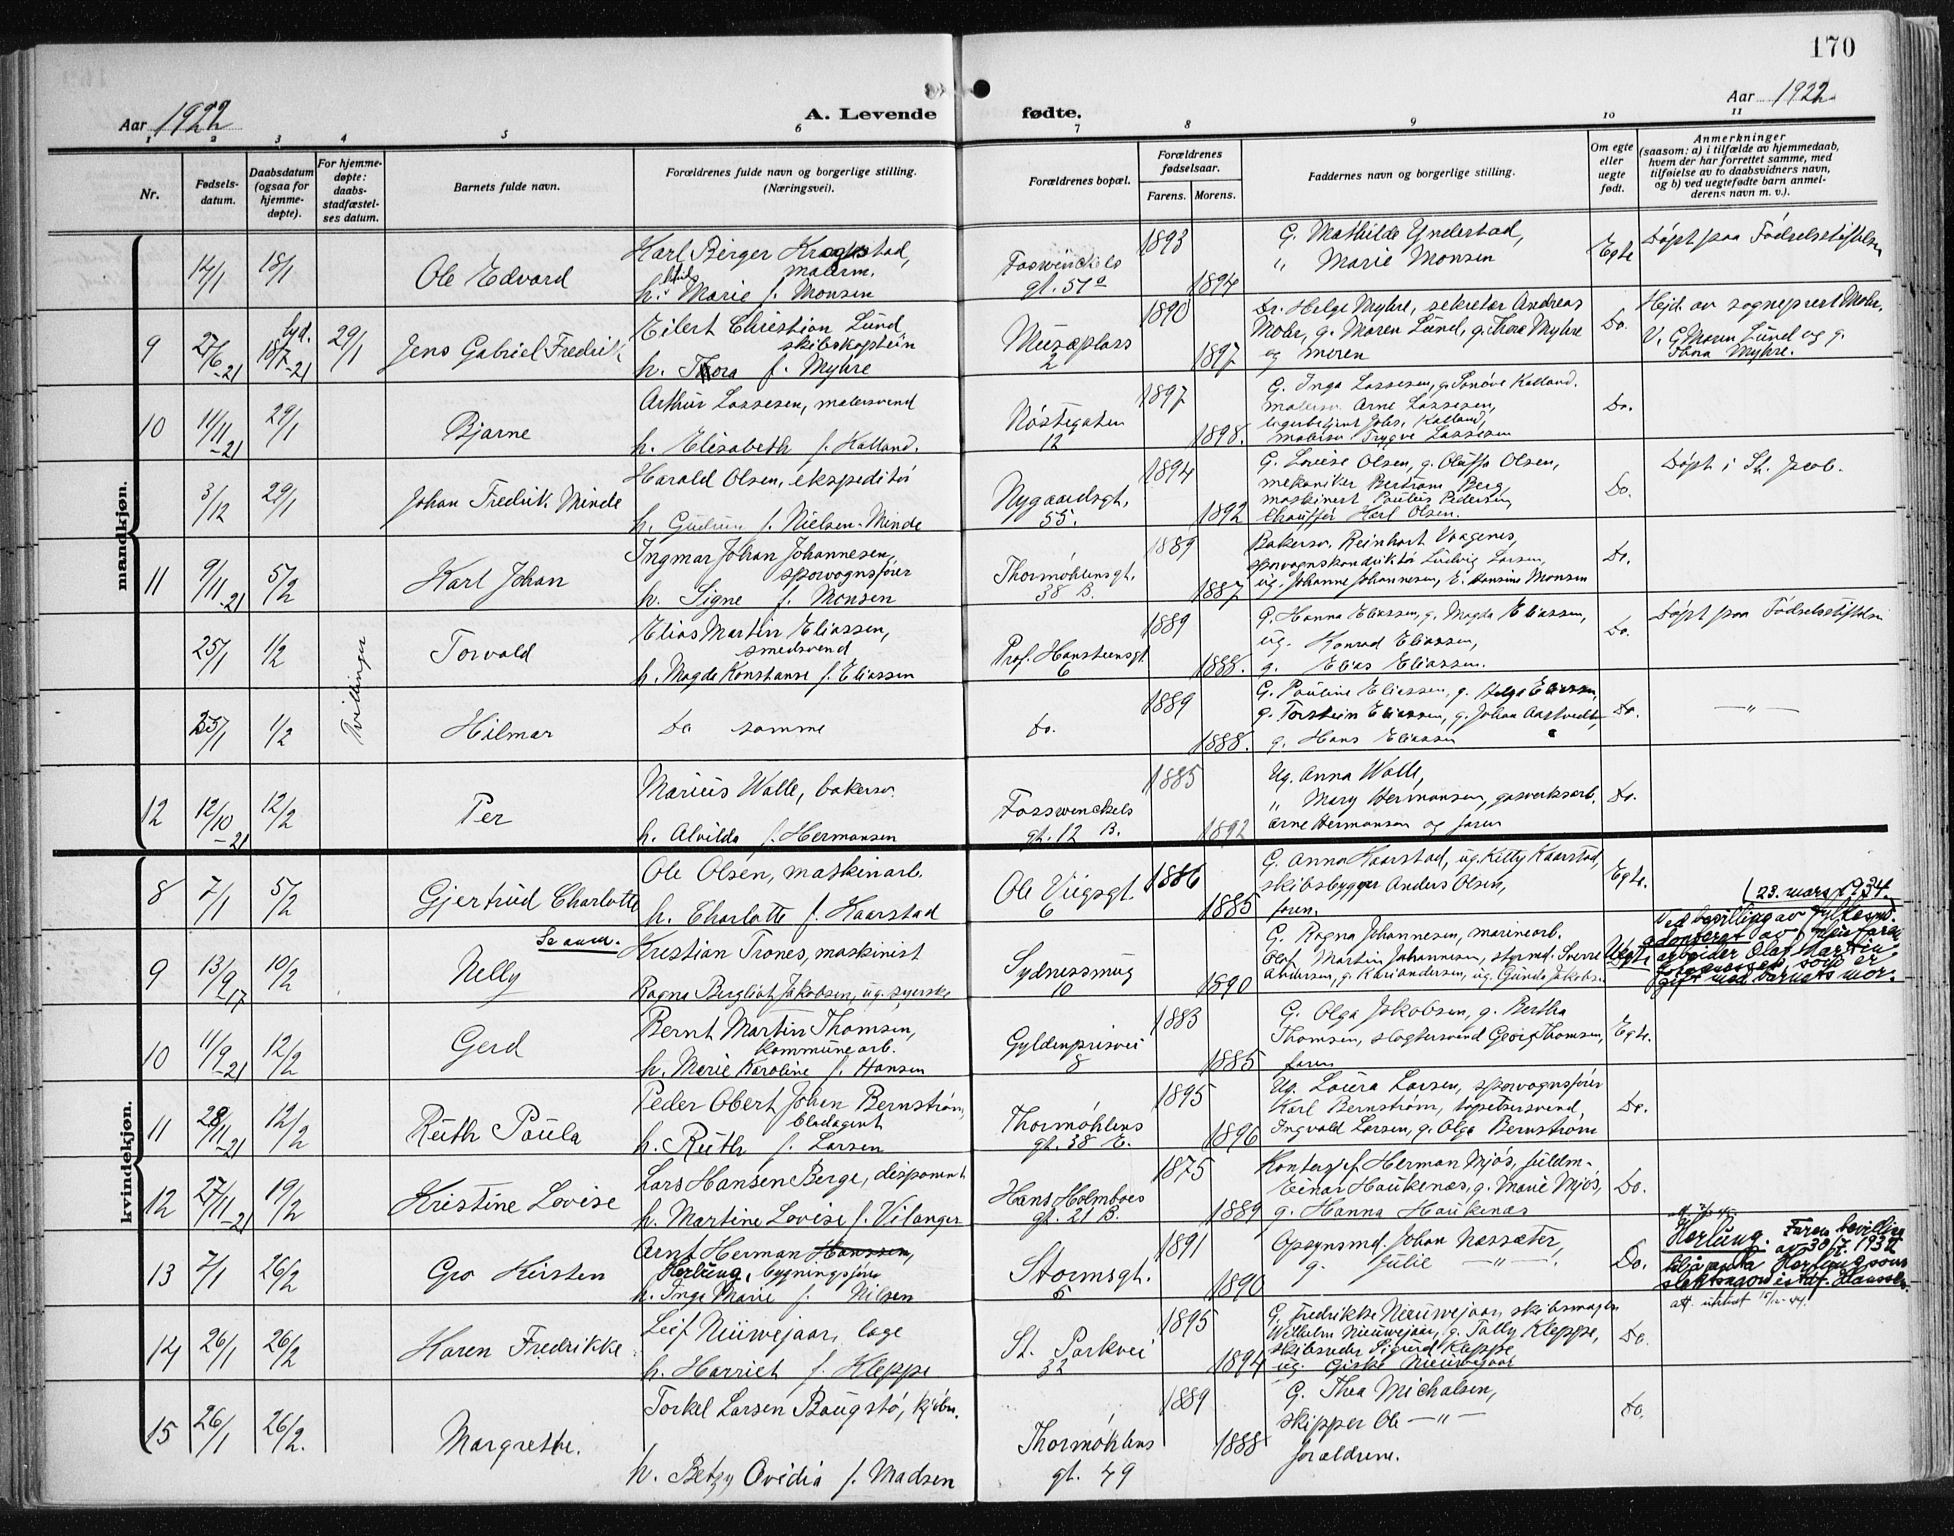 170
Aar 1922
A. Levende fødte.
Aar 1922
1 2 3 4 5 6 7 8 9 10 11
Nr.
Fødsels-
datum.
Daabsdatum
(ogsaa for
hjemme-
døpte).
For hjemme-
døpte:
daabs-
stadfæstel-
ses datum.
Barnets fulde navn.
Forældrenes fulde navn og borgerlige stilling.
(Næringsvei).
Forældrenes bopæl.
Forældrenes
fødselsaar.
Farens. Morens.
Faddernes navn og borgerlige stilling.
Om egte
eller
uegte
født.
Anmerkninger
(saasom: a) i tilfælde av hjemmedaab,
hvem der har forrettet samme, med
tilføielse av to daabsvidners navn,
og b) ved uegtefødte barn anmel-
derens navn m. v.).
mandkjøn.
14/1 18/1 Ole Edvard
Karl Birger Kragstad,
malerm.
h. Marie f. Monsen
Fosswinckels
gt. 51a
1893
1894
G. Mathilde Yndestad,
" Marie Monsen
Egte
Døpt paa Fødselsstiftelsen
9 27/6-21 18/7-21 29/1 Jens Gabriel Fredrik
Eilert Christian Lund
skibskaptein
h. Thora f. Myhre
Musæplass
2
1890
1897
Dr. Helge Myhre, sekretær Andreas
Mohr, g. Maren Lund, g. Thora Myhre
og moren
Do.
Hejd. av sogneprest Mohr.
V. G Maren Lund og g.
Thora Myhre.
10 11/11-21 29/1 Bjarne
Arthur Lassesen, malersvend
h. Elisabeth f. Kalland.
Nøstegaten
12
1897
1898.
G. Inga Lassesen, g. Tonøve Kalland.
malersv. Arne Lassesen,
lagerbetjent Johs. Kalland,
malersv Trygve Lassesen
Do.
3/12 29/1 Johan Fredrik Minde
Harald Olsen, ekspeditør
h. Gudrun f. Nielsen-Minde
Nygaardsgt.
55.
1894
1892
G. Lovise Olsen, g. Oluffa Olsen,
mekaniker Bertram Berg
maskinert Paulus Pedersen
Chauffør Karl Olsen.
Do.
Døpt i St. Jacob.
11 9/11-21 5/2 Karl Johan
Ingmar Johan Johannesen,
sporvognsfører
h. Signe f. Monsen
Thormøhlensgt.
38 B.
1889
1887
Bakersv. Reinhart Vaagenes,
sporvognskonduktør Ludvig Larsen,
ug. Johanne Johannesen, E. Hansine Monsen
Do.
25/1 1/2 Torvald
Tvillinger
Elias Martin Eliassen,
smedsvend
h. Magda Konstanse f. Eliassen
Prof. Hansteensgt
6
1889
1888.
G. Hanna Eliassen, g. Magda Eliassen,
ug. Konrad Eliassen,
g. Elias Eliassen.
Do.
Døpt paa Fødselsstiftelsen
25/1 1/2 Hilmar
Do samme
Do.
1889
1888.
G. Pauline Eliassen, g. Helga Eliassen,
g. Torstein Eliassen, g. Johan Aastvedt
g. Hans Eliassen
Do.
— " —
12 12/10-21 12/2 Per
Marius Walle, bakersv.
h. Alvilda f. Hermansen
Fosswinckels
gt. 12 B.
1885
1892
Ug. Anna Walle,
" Mary Hermansen, gasverksarb.
Arne Hermansen og faren
Do.
kvindekjøn.
8 7/1 5/2 Gjertrud Charlotte
Ole Olsen, maskinarb.
h. Charlotte f. Kaarstad
Ole Viigsgt.
6
1886
1885
G. Anna Kaarstad, ug. Kitty Kaarstad,
skibsbygger Anders Olsen,
faren.
Egte.
9 13/9-17 10/2 Nelly
Se anm.
Kristian Trones, maskinist
Ragna Bergliot Jakobsen, ug. syerske
Sydnessmug
10
1890
G. Ragna Johannesen, marinearb.
Olof Martin Johannesen, styrmd. Sverre
Andersen, g. Kari Andersen, ug. Gunda Jakobsen
Uegte
(23. mars 1934.
Ved bevilling av Fylkesmd.
adoptert av pleiefaren
arbeider Olaf Martin
Johannesen som er
gift med barnets mor.
10 11/9-21 12/2 Gerd
Bernt Martin Thomsen,
kommunearb.
h. Marie Karoline f. Hansen
Gyldenprisvei
8
1883
1885
G. Olga Jakobsen, g. Bertha
Thomsen, slagtersvend Georg Thomsen,
faren
Egte.
11 28/11-21 12/2 Ruth Paula
Peder Obert Johan Bernstrøm,
bladagent
h. Ruth f. Larsen
Thormøhlens
gt. 38 E.
1895
1896
Ug. Laura Larsen, sporvognsfører
Karl Bernstrøm, tapetsersvend,
Ingvald Larsen, g. Olga Bernstrøm
Do.
12 27/11-21 19/2 Kristine Lovise
Lars Hansen Berge, disponent
h. Martine Lovise f. Vilanger
Hans Holmboes
gt. 21 B.
1875
1889
Kontorsjef Herman Mjøs, fuldm.
Einar Haukenæs, g. Marie Mjøs,
g. Hanna Haukenæs
Do.
13 7/1 26/2 Gro Kirsten
Arnt Herman Hanssen,
Herlung, bygningsfører
h. Inga Marie f. Nilsen
Stormsgt.
5
1891
1890
Opsynsmd. Johan Næssæter,
g. Julie — " —
Do.
Herlung. Faren bevilling
av 30/7. 1932
til å anta Herlung som
slektsnavn istdf. Hanssen.
att. utstedt
14 26/1 26/2 Karen Fredrikke
Leif Nieuwejaar, læge
h. Harriet f. Kleppe
St. Parkvei
32
1895
1894
G. Fredrikke Nieuwejaar, skibsmægler
Wilhelm Nieuwejaar, g. Tally Kleppe,
skibsreder Sigurd Kleppe
ug. Giske Nieuwejaar
Do.
15 26/1 26/2. Margrethe.
Torkel Larsen Baugstø, kjøbm.
h. Betzy Ovidia f. Madsen
Thormøhlens
gt. 49
1889
1888
G. Thea Michalsen,
skipper Ole — " —
forældrene.
Do.